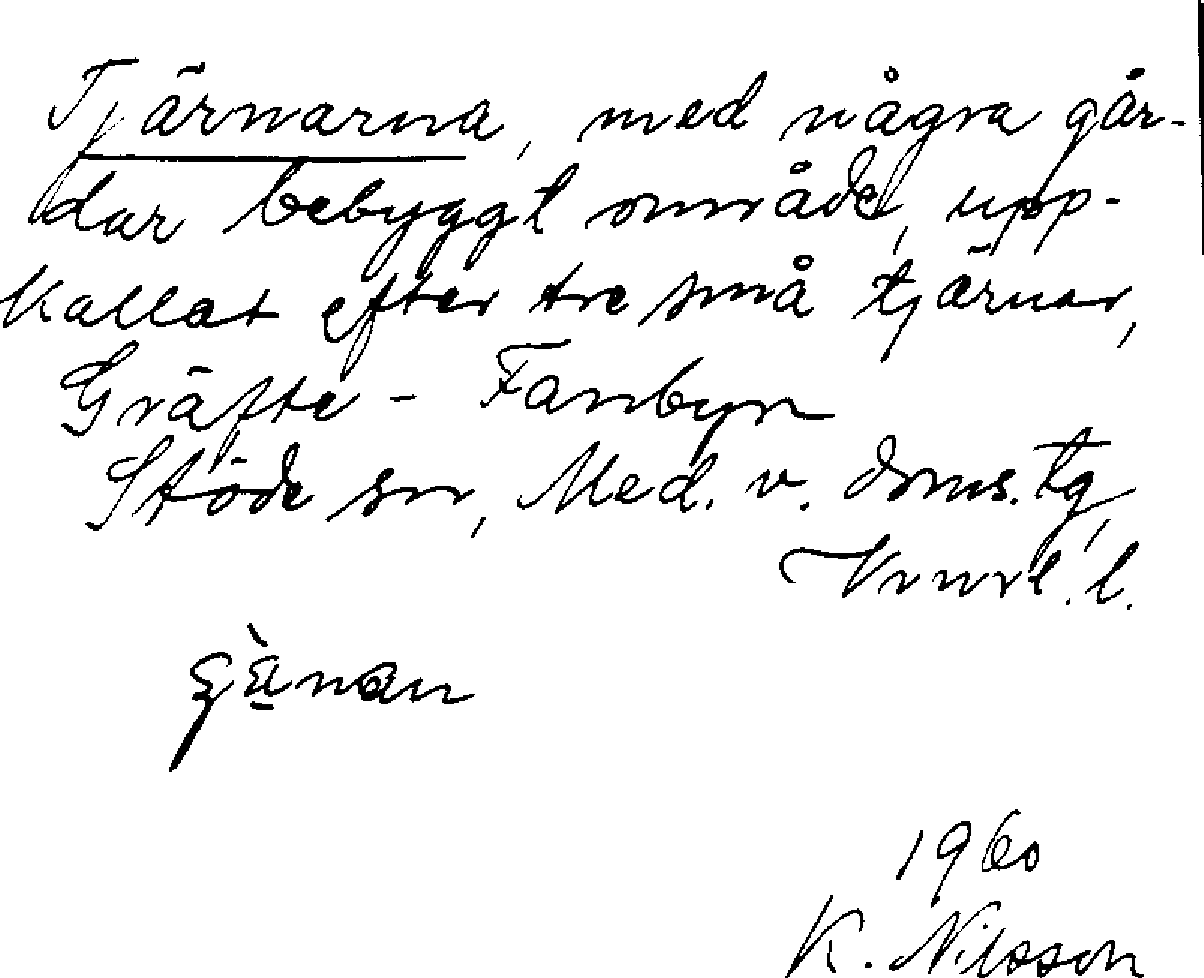 Tjärnarna, med några går-
dar bebyggt område, upp-
kallat efter tre små tjärnar,
Gräfte - Fanbyn
Stöde sn, Med. v. doms. tg,
l.
1960
K. Nilsson